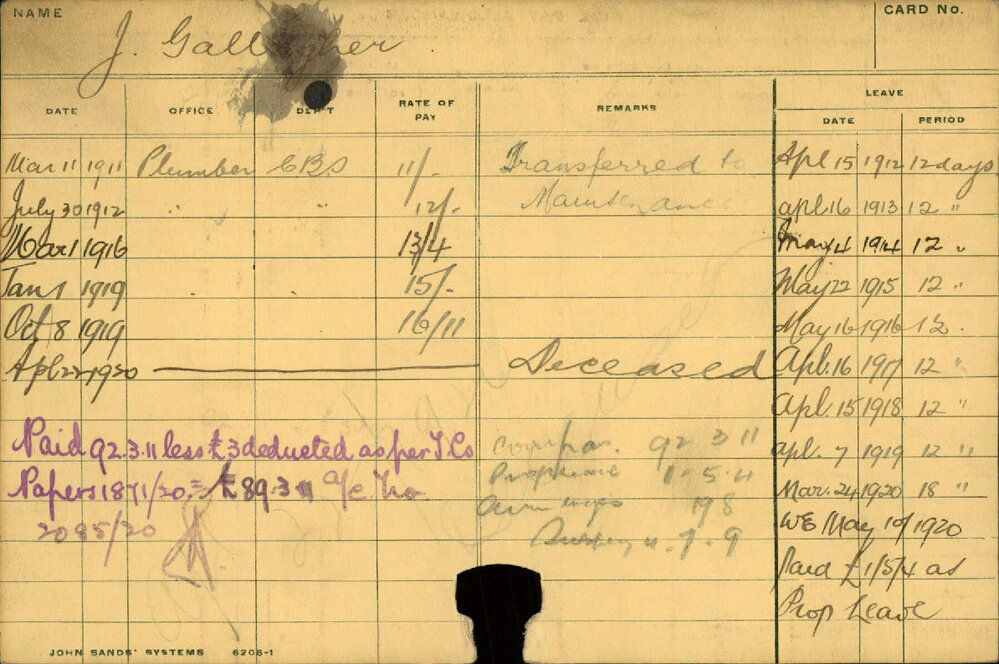 NAME
CARD No.
J. Gallagher
DATE OFFICE DEP'T RATE OF PAY REMARKS LEAVE
DATE PERIOD
Mar 11 1911 Plumber CBS 11/- Transferred to Apl 15 1912 12 days
July 30 1912 " " 12/- Maintenance apl. 16 1913 12 "
Mar 1 1916 13/4 May 4 1914 12 "
Jan 1 1919 " " 15/- May 22 1915 12 "
Oct 8 1919 16/11 May 16 1916 12 "
Apl 22 1920 Deceased Apl. 16 1917 12 "
Apl. 15 1918 12 "
Paid 92.3.11 less £3 deducted as per T. Co compa. 92 3 11 apl. 7 1919 12 "
Papers 1871/20 = £89.3.11 a/c No 1 . 5 . 4 Mar. 24 1920 18 "
2085/20 19 8 WE May 19/1920
4 . 7 . 9
Paid £1/5/4 as
Prop Leave
JOHN SANDS' SYSTEMS 6206-1